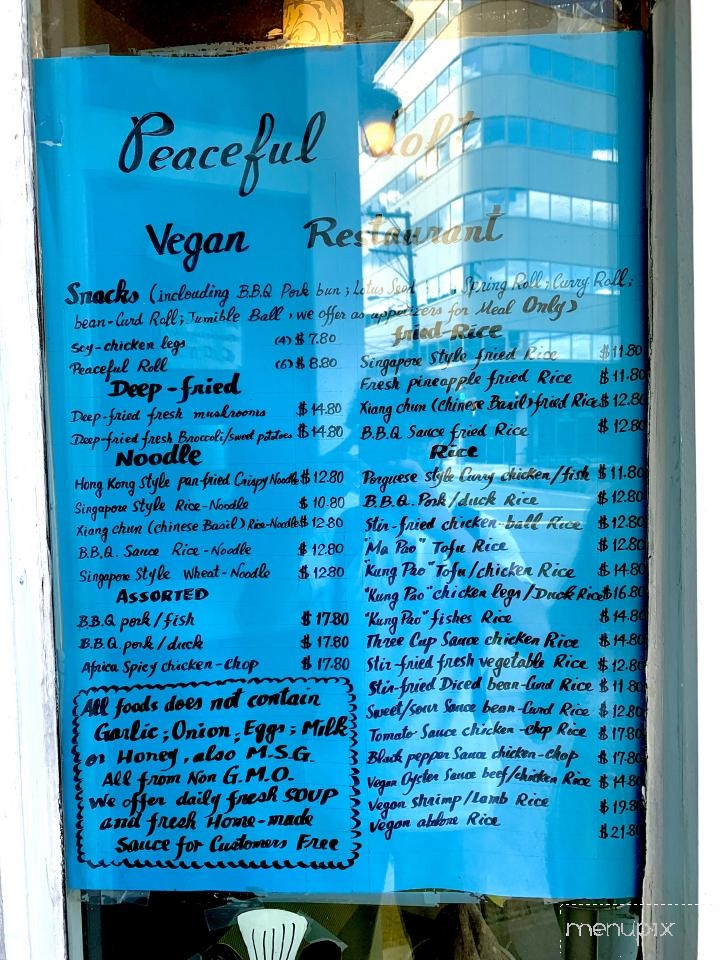 Peaceful Loft
Vegan Restaurant
Snacks (inclouding B.B.Q Pork bun ; Lotus Seed Spring Roll ; Curry Roll ;
bean-Curd Roll ; Jumible Ball , we offer as appetizers for Meal Only)
Soy-chicken legs (4) $ 7.80
Peaceful Roll (6) $ 8.80
Deep-fried
Deep-fried fresh mushrooms $ 14.80
Deep-fried fresh Broccoli/sweet potatoes $ 14.80
Noodle
Hong Kong Style pan-fried Crispy Noodle $ 12.80
Singapore Style Rice-Noodle $ 10.80
Xiang chun (chinese Basil) Rice-Noodle $ 12.80
B.B.Q. Sauce Rice-Noodle $ 12.80
Singapore Style Wheat-Noodle $ 12.80
ASSORTED
B.B.Q pork/fish $ 17.80
B.B.Q. pork/duck $ 17.80
Africa Spicy chicken-chop $ 17.80
All foods does not contain
Garlic ; Onion ; Eggs ; Milk
or Honey , also M.S.G.
All from Non G.M.O.
We offer daily fresh SOUP
and fresh Home-made
Sauce for Customers Free
fried-Rice
Singapore Style fried Rice $ 11.80
Fresh pineapple fried Rice $ 11.80
Xiang chun (Chinese Basil) fried Rice $ 12.80
B.B.Q Sauce fried Rice $ 12.80
Rice
Porguese style Curry chicken/fish $ 11.80
B.B.Q. Pork/duck Rice $ 12.80
Stir-fried chicken-ball Rice $ 12.80
"Ma Pao" Tofu Rice $ 12.80
"Kung Pao" Tofu/chicken Rice $ 14.80
"Kung Pao" chicken legs/Duck Rice $ 16.80
"Kung Pao" fishes Rice $ 14.80
Three Cup Sauce chicken Rice $ 14.80
Stir-fried fresh vegetable Rice $ 12.80
Stir-fried Diced bean-Curd Rice $ 11.80
Sweet/sour Sauce bean-Curd Rice $ 12.80
Tomato Sauce chicken-chop Rice $ 17.80
Black pepper Sauce chicken-chop $ 17.80
Vegan Oyster Sauce beef/chicken Rice $ 14.80
Vegan shrimp/Lamb Rice $ 19.8
Vegan ablone Rice $ 21.80
menupix